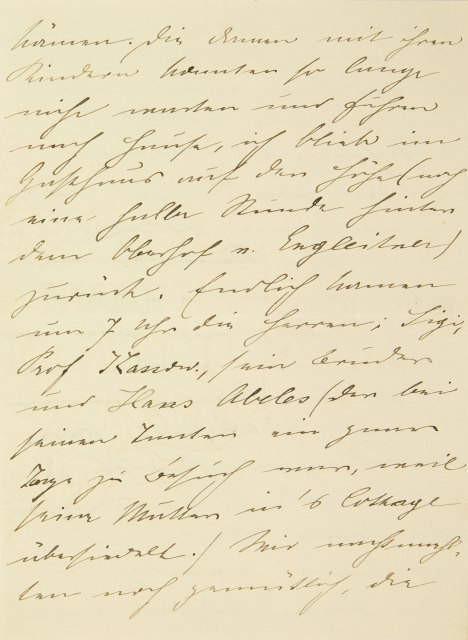 kämen. Die Damen mit ihren
Kindern konnten so lange
nicht warten und fuhren
nach Hause, ich blieb im
Gasthaus auf der Höhe (noch
eine halbe Stunde hinter
dem Oberhof v. Engleitner)
zurück. Endlich kamen
um 7 Uhr die Herren; Sigi,
Prof Kassow., sein Bruder
und Hans Abeles (der bei
seinen Tanten ein paar
Tage zu Besuch war, weil
seine Mutter in's Cottage
übersiedelt.) Wir nachtmahl-
ten noch gemütlich, die